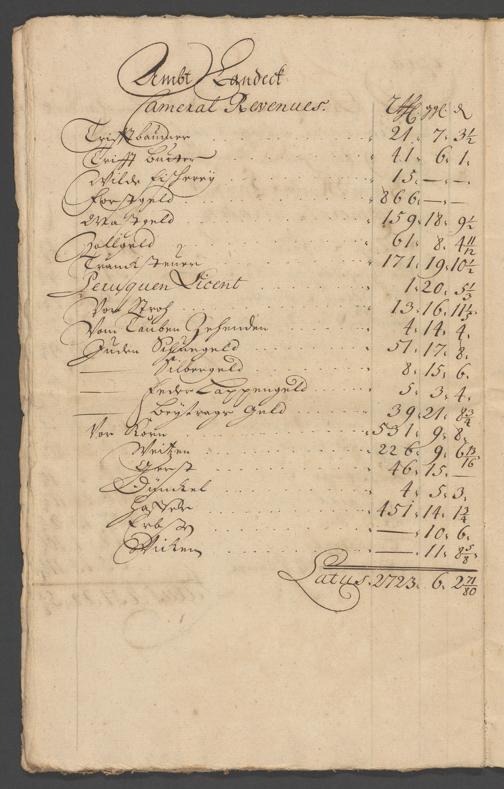 Ambt Landeck
Cameral Revenues.
Rth gl d
Triffthammer 21. 7. 3 1/2
Trifft Butter 41. 6. 1.
Wilde Fischerey 15. — —
Forstgeld 866. — —
Mastgeld 159. 18. 9 1/2
Zollgeld 61. 8. 4 11/12
Tranksteuer 171. 19. 10 1/2
Peruquen Licent 1. 20. 5 1/3
Vor Stroh 13. 16. 11
Vom Tauben Zehenden 4. 14. 4.
Juden Schutzgeld 51. 17. 8.
— Silbergeld 8. 15. 6.
— Feder Lappengeld 5. 3. 4.
— Beytrags Geld 39. 21. 8 3/4
Vor Korn 531. 9. 8.
Weitzen 226. 9. 6 13/16
Gerst 46. 15. —
Dünkel 4. 5. 3.
Haffer 451. 14. 1 3/4
Erbsen — 10. 6.
Wicken — 11. 8 5/8
Latus. 2723. 6. 2 71/80